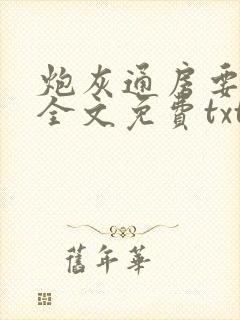 炮灰通房要
全文免費txt
舊年華